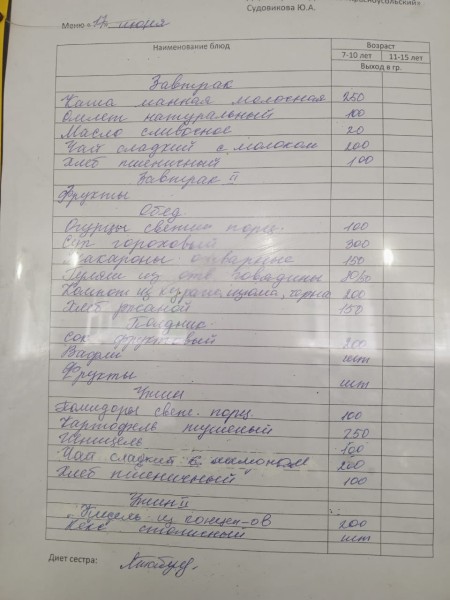 Красноусольский»
Судовикова Ю.А.
Меню « 17 » июня
Наименование блюд Возраст
7-10 лет 11-15 лет
Выход в гр.
Завтрак
Каша манная молочная 250
Омлет натуральный 100
Масло сливочное 20
Чай сладкий с молоком 200
Хлеб пшеничный 100
Завтрак II
Фрукты
Обед
Огурцы свежии порц. 100
Суп гороховый 300
Макароны отварные 150
Гуляш из отв говядины
Компот из 200
Хлеб ржаной 150
Полдник
Сок фруктовый 200
Вафли шт
Фрукты шт
Ужин
Помидоры свеж. порц. 100
Картофель тушеный 250
Шницель 100
Чай сладкий с лимоном 200
Хлеб пшеничный 100
Ужин II
Кисель из концен-ов 200
Кекс столичный шт
Диет сестра: